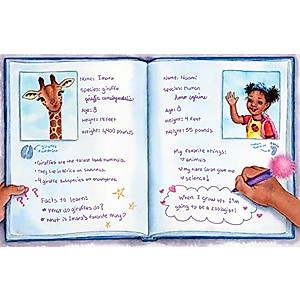 Name: Imara
Species: giraffe
giraffa camelopardalis
Age: 8
Height: 14 feet
Weight: 1,400 pounds
a giraffe
footprint
• Giraffes are the tallest land mammals.
• They live in Africa on savannas.
• 4 giraffe subspecies are endangered.
Facts to learn:
What do giraffes do?
What is Imara's favorite thing?
Name: Naomi
Species: human
homo sapiens
Age: 8
Height: 4 feet
Weight: 55 pounds
My favorite things:
♡ animals
♡ science!
When I grow up, I'm
going to be a zoologist!